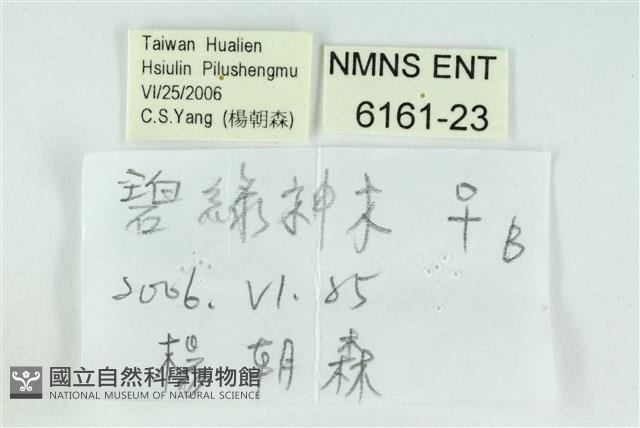 Taiwan Hualien
Hsiulin Pilushengmu
VI/25/2006
C.S.Yang (楊朝森)
NMNS ENT
6161-23
碧綠神木 ♀ B
2006. VI. 25
楊朝森
國立自然科學博物館
NATIONAL MUSEUM OF NATURAL SCIENCE